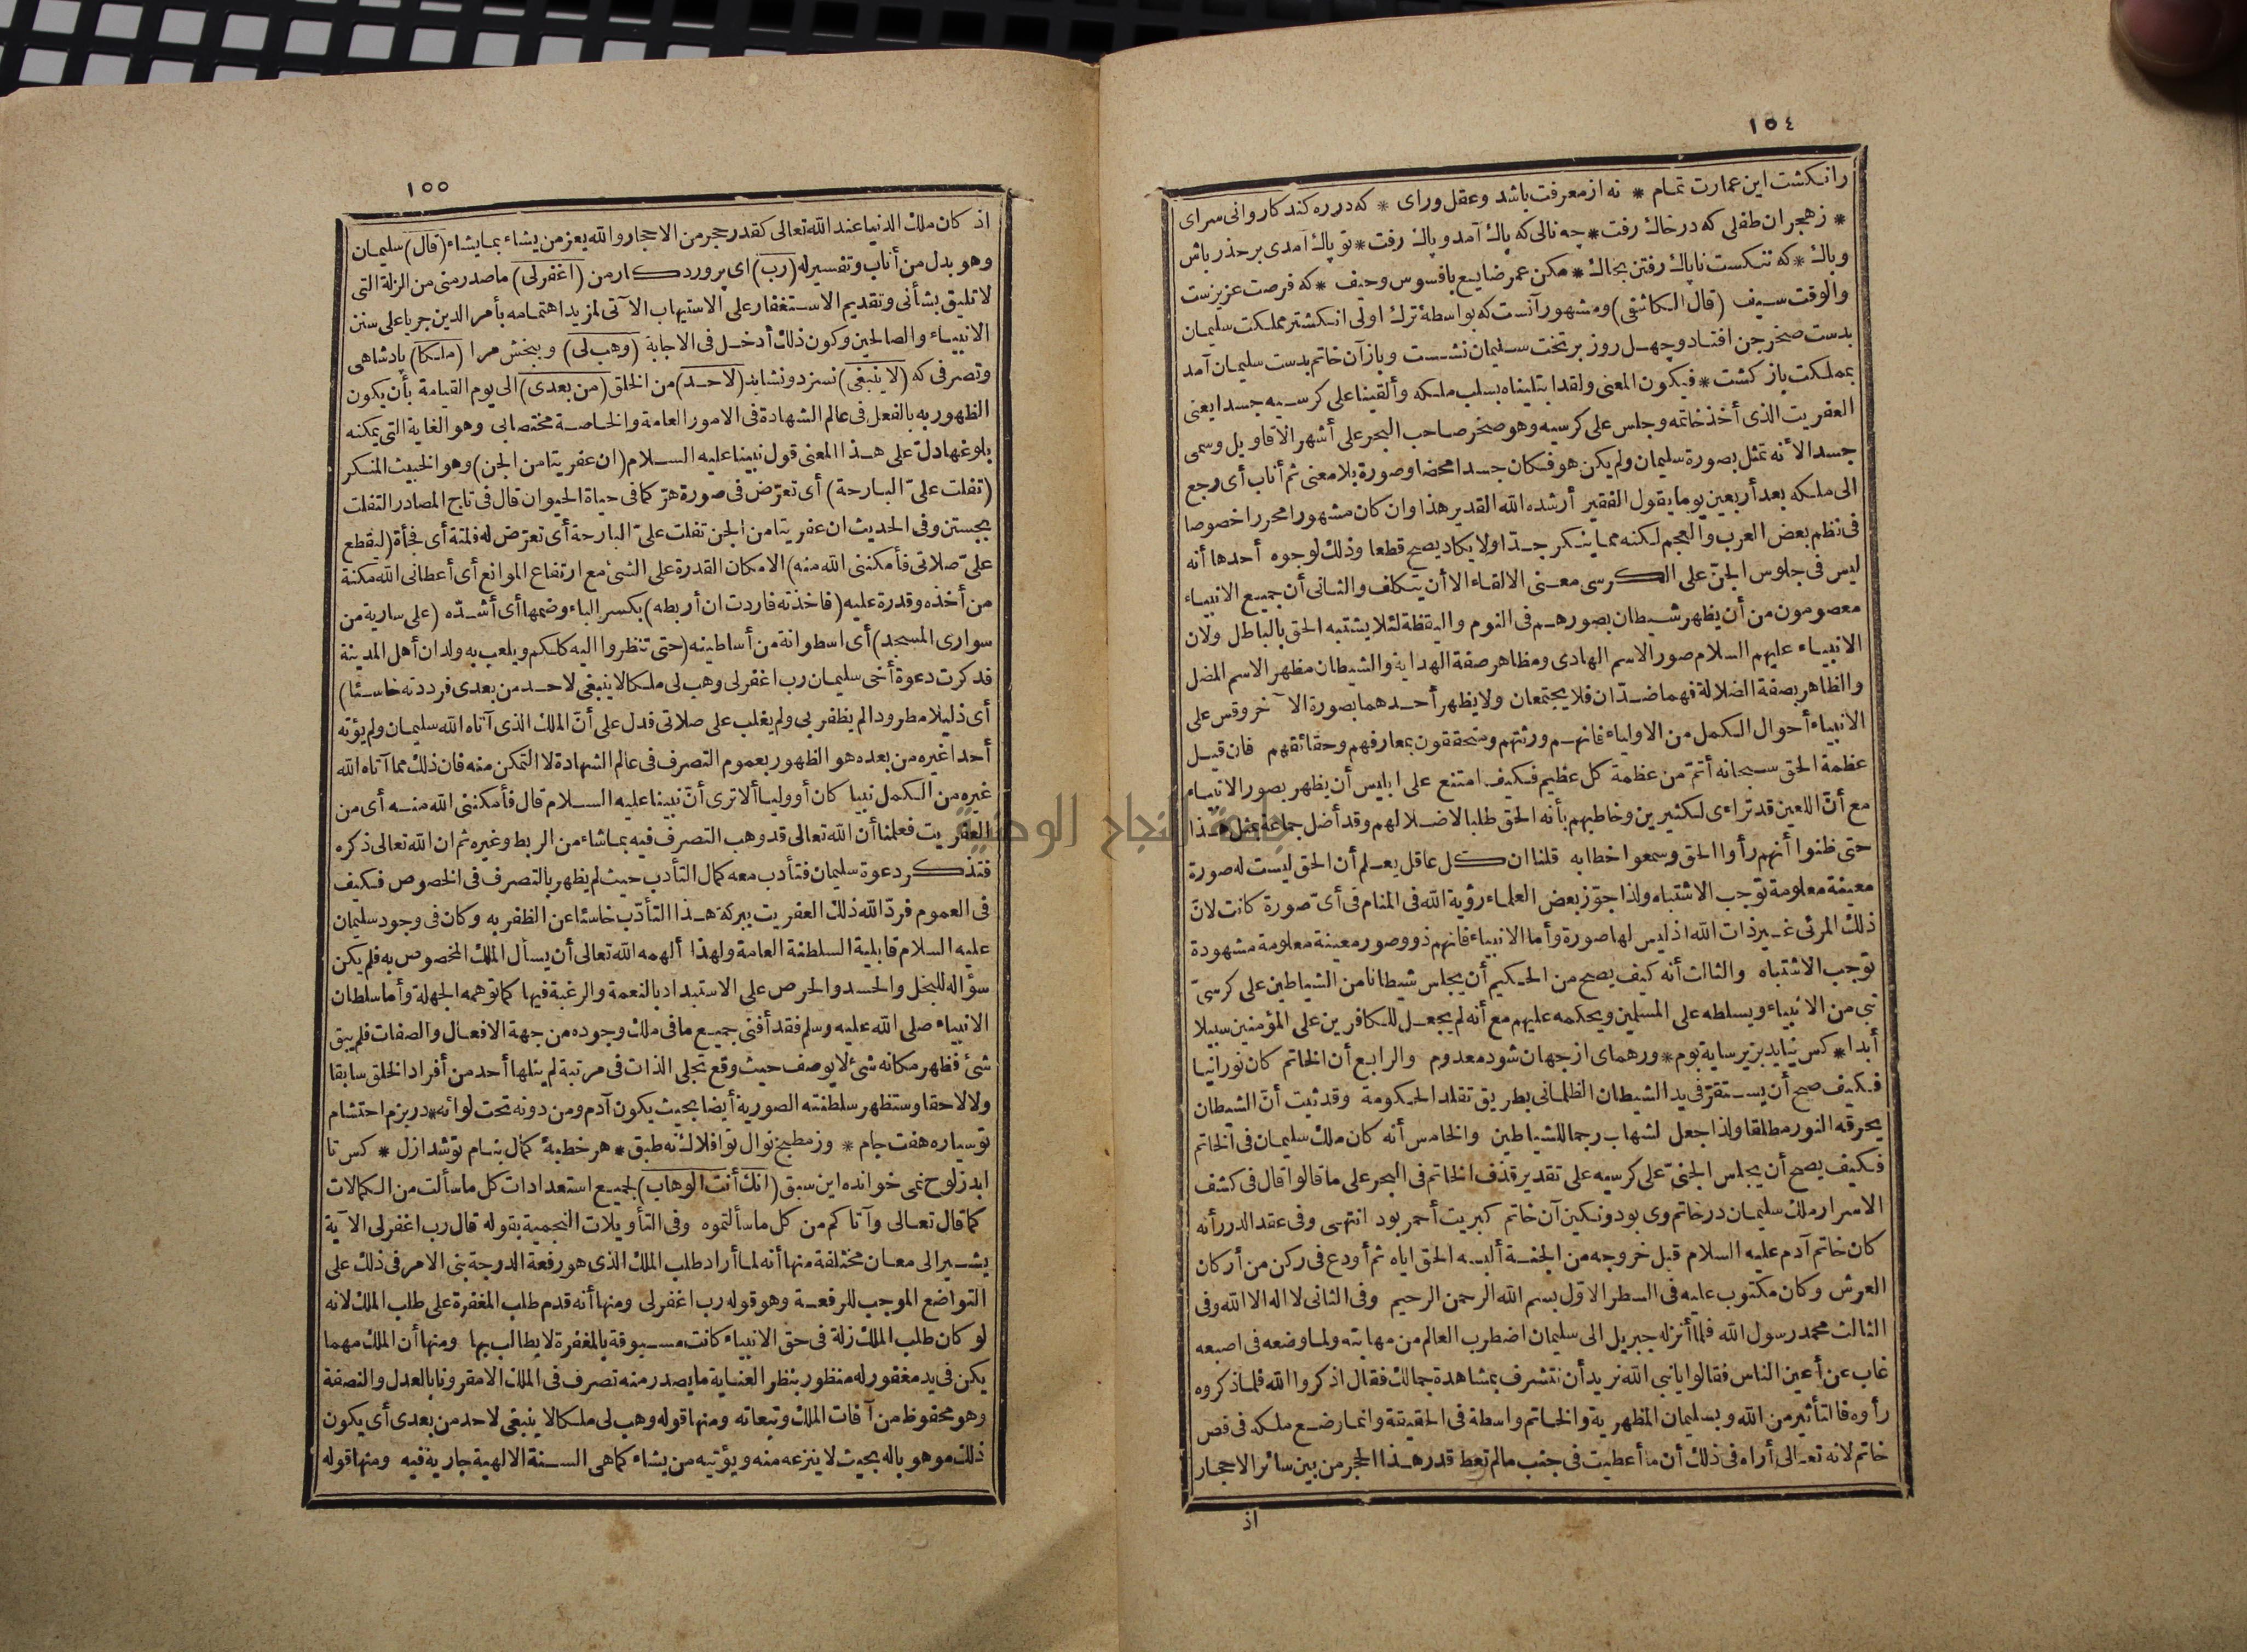 ١٥٤
را نكشت اين عمارت تمام * نه از معرفت باشد وعقل وراى * كه در ره كند كاروانى سراى
* ز هجران طفلى كه در خاك رفت * چه نالى كه پاك آمد و پاك رفت * تو پاك آمدى بر حذر باش
وباك * كه ننكست ناپاك رفتن بخاك * مكن عمر ضايع بافسوس وحيف * كه فرصت عزيزست
والوقت سيف (قال الكاشفى) ومشهور آنست كه بواسطهٔ ترك اولى انكشتر مملكت سليمان
بدست صخر جن افتاد وچهل روز بر تخت سليمان نشست وباز آن خاتم بدست سليمان آمد
بمملكت باز كشت * فيكون المعنى ولقد ابتليناه بسلب ملكه وألقينا على كرسيه جسدا يعنى
العفريت الذى أخذ خاتمه وجلس على كرسيه وهو صخر صاحب البحر على أشهر الاقاويل وسمى
جسدا لأنه تمثل بصورة سليمان ولم يكن هو فكان جسدا محضا وصورة بلا معنى ثم أناب أى رجع
الى ملكه بعد أربعين يوما يقول الفقير أرشده الله القدير هذا وان كان مشهورا محررا خصوصا
فى نظم بعض العرب والعجم لكنه مما ينكر جدّا ولا يكاد يصح قطعا وذلك لوجوه أحدها أنه
ليس فى جلوس الجنّ على الكرسى معنى الالقاء الا أن يتكلف والثانى أن جميع الانبياء
معصومون من أن يظهر شيطان بصورهم فى النوم واليقظة لئلا يشتبه الحق بالباطل ولان
الانبياء عليهم السلام صور الاسم الهادى ومظاهر صفة الهداية والشيطان مظهر الاسم المضل
والظاهر بصفة الضلالة فهما ضدّان فلا يجتمعان ولا يظهر أحدهما بصورة الآخر وقس على
الانبياء أحوال الكمل من الاولياء فانهم ورثتهم ومتحققون بمعارفهم وحقائقهم فان قيل
عظمة الحق سبحانه أتمّ من عظمة كل عظيم فكيف امتنع على ابليس أن يظهر بصور الانبياء
مع أنّ اللعين قد تراءى لكثيرين وخاطبهم بأنه الحق طلبا لاضلالهم وقد أضل جماعة بمثل هذا
حتى ظنوا أنهم رأوا الحق وسمعوا خطابه قلنا ان كل عاقل يعلم أن الحق ليست له صورة
معينة معلومة توجب الاشتباه ولذا جوّز بعض العلماء رؤية الله فى المنام فى أىّ صورة كانت لان
ذلك المرئى غير ذات الله اذ ليس لها صورة وأما الانبياء فانهم ذوو صور معينة معلومة مشهودة
توجب الاشتباه والثالث أنه كيف يصح من الحكيم أن يجلس شيطانا من الشياطين على كرسىّ
نبى من الانبياء ويسلطه على المسلمين ويحكمه عليهم مع أنه لم يجعل للكافرين على المؤمنين سبيلا
أبدا * كس نيايد بزير سايهٔ بوم * ور هماى از جهان شود معدوم والرابع أن الخاتم كان نورانيا
فكيف صح أن يستقرّ فى يد الشيطان الظلمانى بطريق تقلد الحكومة وقد ثبت أنّ الشيطان
يحرقه النور مطلقا ولذا جعل الشهاب رجما للشياطين والخامس أنه كان ملك سليمان فى الخاتم
فكيف يصح أن يجلس الجنىّ على كرسيه على تقدير قذف الخاتم فى البحر على ما قالوا قال فى كشف
الاسرار ملك سليمان در خاتم وى بود ونكين آن خاتم كبريت أحمر بود انتهى وفى عقد الدرر أنه
كان خاتم آدم عليه السلام قبل خروجه من الجنة ألبسه الحق اياه ثم أودع فى ركن من أركان
العرش وكان مكتوب عليه فى السطر الاوّل بسم الله الرحمن الرحيم وفى الثانى لا اله الا الله وفى
الثالث محمد رسول الله فلما أنزله جبريل الى سليمان اضطرب العالم من مهابته ولما وضعه فى اصبعه
غاب عن أعين الناس فقالوا يا نبى الله نريد أن نتشرف بمشاهدة جمالك فقال اذكروا الله فلما ذكروه
رأوه فالتأثير من الله وبسليمان المظهرية والخاتم واسطة فى الحقيقة وانما وضع ملكه فى فص
خاتم لانه تعالى أراه فى ذلك أن ما أعطيت فى جنب ما لم تعط قدر هذا الحجر من بين سائر الاحجار
اذ
١٥٥
اذ كان ملك الدنيا عند الله تعالى كقدر حجر من الاحجار والله يعز من يشاء بما يشاء (قال) سليمان
وهو بدل من أناب وتفسير له (رب) اى پروردكار من (اغفر لى) ما صدر منى من الزلة التى
لا تليق بشأنى وتقديم الاستغفار على الاستيهاب الآتى لمزيد اهتمامه بأمر الدين جريا على سنن
الانبياء والصالحين وكون ذلك أدخل فى الاجابة (وهب لى) وببخش مرا (ملكا) پادشاهى
وتصرفى كه (لا ينبغى) نسزد ونشايد (لاحد) من الخلق (من بعدى) الى يوم القيامة بأن يكون
الظهور به بالفعل فى عالم الشهادة فى الامور العامة والخاصة مختصا بى وهو الغاية التى يمكنه
بلوغها دل على هذا المعنى قول نبينا عليه السلام (ان عفريتا من الجن) وهو الخبيث المنكر
(تفلت علىّ البارحة) أى تعرّض فى صورة هرّ كما فى حياة الحيوان قال فى تاج المصادر التفلت
بجستن وفى الحديث ان عفريتا من الجن تفلت علىّ البارحة أى تعرّض له فلتة أى فجأة (ليقطع
علىّ صلاتى فأمكننى الله منه) الامكان القدرة على الشئ مع ارتفاع الموانع أى أعطانى الله مكنة
من أخذه وقدرة عليه (فاخذته فاردت ان أربطه) بكسر الباء وضمها أى أشدّه (على سارية من
سوارى المسجد) أى اسطوانة من أساطينه (حتى تنظروا اليه كلكم ويلعب به ولدان أهل المدينة
فذكرت دعوة أخى سليمان رب اغفر لى وهب لى ملكا لا ينبغى لاحد من بعدى فرددته خاسئا)
أى ذليلا مطرودا لم يظفر بى ولم يغلب على صلاتى فدل على أنّ الملك الذى آتاه الله سليمان ولم يؤته
أحدا غيره من بعده هو الظهور بعموم التصرف فى عالم الشهادة لا التمكن منه فان ذلك مما آتاه الله
غيره من الكمل نبيا كان أو وليا ألا ترى أنّ نبينا عليه السلام قال فأمكننى الله منه أى من
العفريت فعلمنا أن الله تعالى قد وهب التصرف فيه بما شاء من الربط وغيره ثم ان الله تعالى ذكره
فتذكر دعوة سليمان فتأدب معه كمال التأدب حيث لم يظهر بالتصرف فى الخصوص فكيف
فى العموم فردّ الله ذلك العفريت ببركة هذا التأدّب خاسئا عن الظفر به وكان فى وجود سليمان
عليه السلام قابلية السلطنة العامة ولهذا ألهمه الله تعالى أن يسأل الملك المخصوص به فلم يكن
سؤاله للبخل والحسد والحرص على الاستبداد بالنعمة والرغبة فيها كما توهمه الجهلة وأما سلطان
الانبياء صلى الله عليه وسلم فقد أفنى جميع ما فى ملك وجوده من جهة الافعال والصفات فلم يبق
شئ فظهر مكانه شئ لا يوصف حيث وقع تجلى الذات فى مرتبة لم ينلها أحد من أفراد الخلق سابقا
ولا لاحقا وستظهر سلطنته الصورية أيضا بحيث يكون آدم ومن دونه تحت لوائه * در بزم احتشام
تو سياره هفت جام * وز مطبخ نوال تو افلاك نه طبق * هر خطبهٔ كمال بنام تو شد ازل * كس تا
ابد ز لوح نمى خوانده اين سبق (انك أنت الوهاب) لجميع استعدادات كل ما سألت من الكمالات
كما قال تعالى وآتاكم من كل ما سألتموه وفى التأويلات النجمية بقوله قال رب اغفر لى الآية
يشير الى معان مختلفة منها أنه لما أراد طلب الملك الذى هو رفعة الدرجة بنى الامر فى ذلك على
التواضع الموجب للرفعة وهو قوله رب اغفر لى ومنها أنه قدم طلب المغفرة على طلب الملك لانه
لو كان طلب الملك زلة فى حق الانبياء كانت مسبوقة بالمغفرة لا يطالب بها ومنها أن الملك مهما
يكن فى يد مغفور له منظور بنظر العناية ما يصدر منه تصرف فى الملك الا مقرونا بالعدل والنصفة
وهو محفوظ من آفات الملك وتبعاته ومنها قوله وهب لى ملكا لا ينبغى لاحد من بعدى أى يكون
ذلك موهوبا له بحيث لا ينزعه منه ويؤتيه من يشاء كما هى السنة الالهية جارية فيه ومنها قوله
جامعة النجاح الوطنية